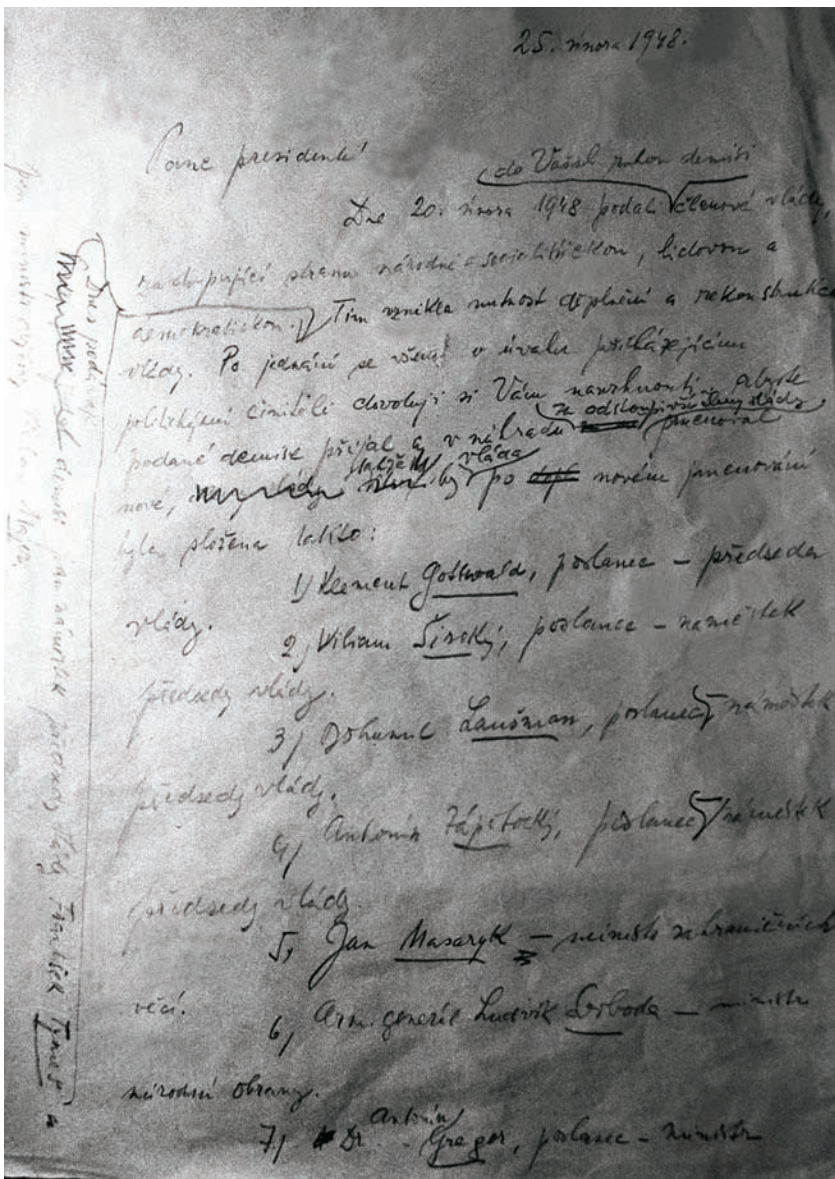 25. února 1948.
Pane presidente!
do Vašich rukou demisi
Dne 20. února 1948 podali členové vlády,
zastupující stranu národně-socialistickou, lidovou a
demokratickou. Tím vznikla nutnost doplnění a rekonstrukce
vlády. Po jednání se všemi v úvahu přicházejícími
politickými činiteli dovoluji si Vám navrhnouti, abyste
za odstoupivší členy vlády
podané demise přijal a v náhradu jmenoval
takže vláda
nové, by po novém jmenování
byla složena takto:
1) Klement Gottwald, poslanec – předseda
vlády.
2) Viliam Široký, poslanec – náměstek
předsedy vlády.
3) Bohumil Laušman, poslanec, náměstek
předsedy vlády.
4) Antonín Zápotocký, poslanec, náměstek
předsedy vlády.
5) Jan Masaryk – ministr zahraničních
věcí.
6) Arm. generál Ludvík Svoboda – ministr
národní obrany.
Antonín
7.) Dr. Gregor, poslanec – ministr
Dnes podá
demisi pan náměstek předsedy vlády František Tymeš a
pan ministr